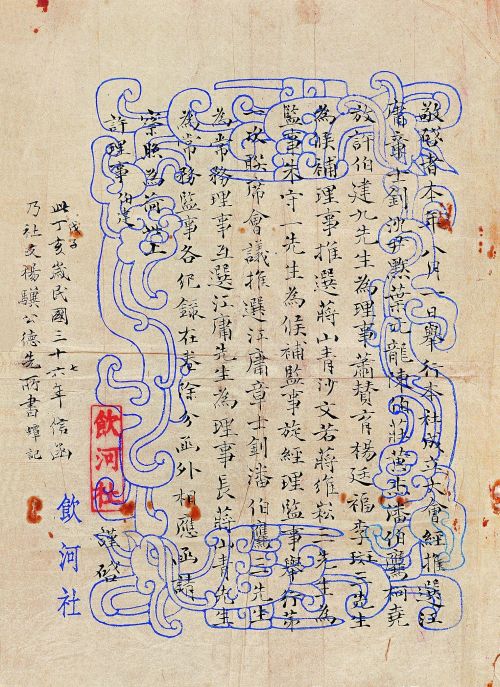 敬啓者本年八月一日舉行本社成立大會經推選江
庸章士釗沈尹默葉元龍陳莊潘伯鷹柯堯
放許伯建九先生為理事蕭贊育楊廷福李三先生
為候補理事推選蔣山青沙文若蔣維崧三先生為
監事朱守一先生為候補監事旋經理監事舉行第
一次聯席會議推選江庸章士釗潘伯鷹三先生
為常務理事互選江庸先生為理事長蔣山青先生
為常務監事各紀錄在卷除分函外相應函請
察照為荷此上
許理事伯建
飲河社 謹啓
飲河社
戊子 七
此丁亥歲民國三十六年信函
乃社友楊驥公德先所書蟬記